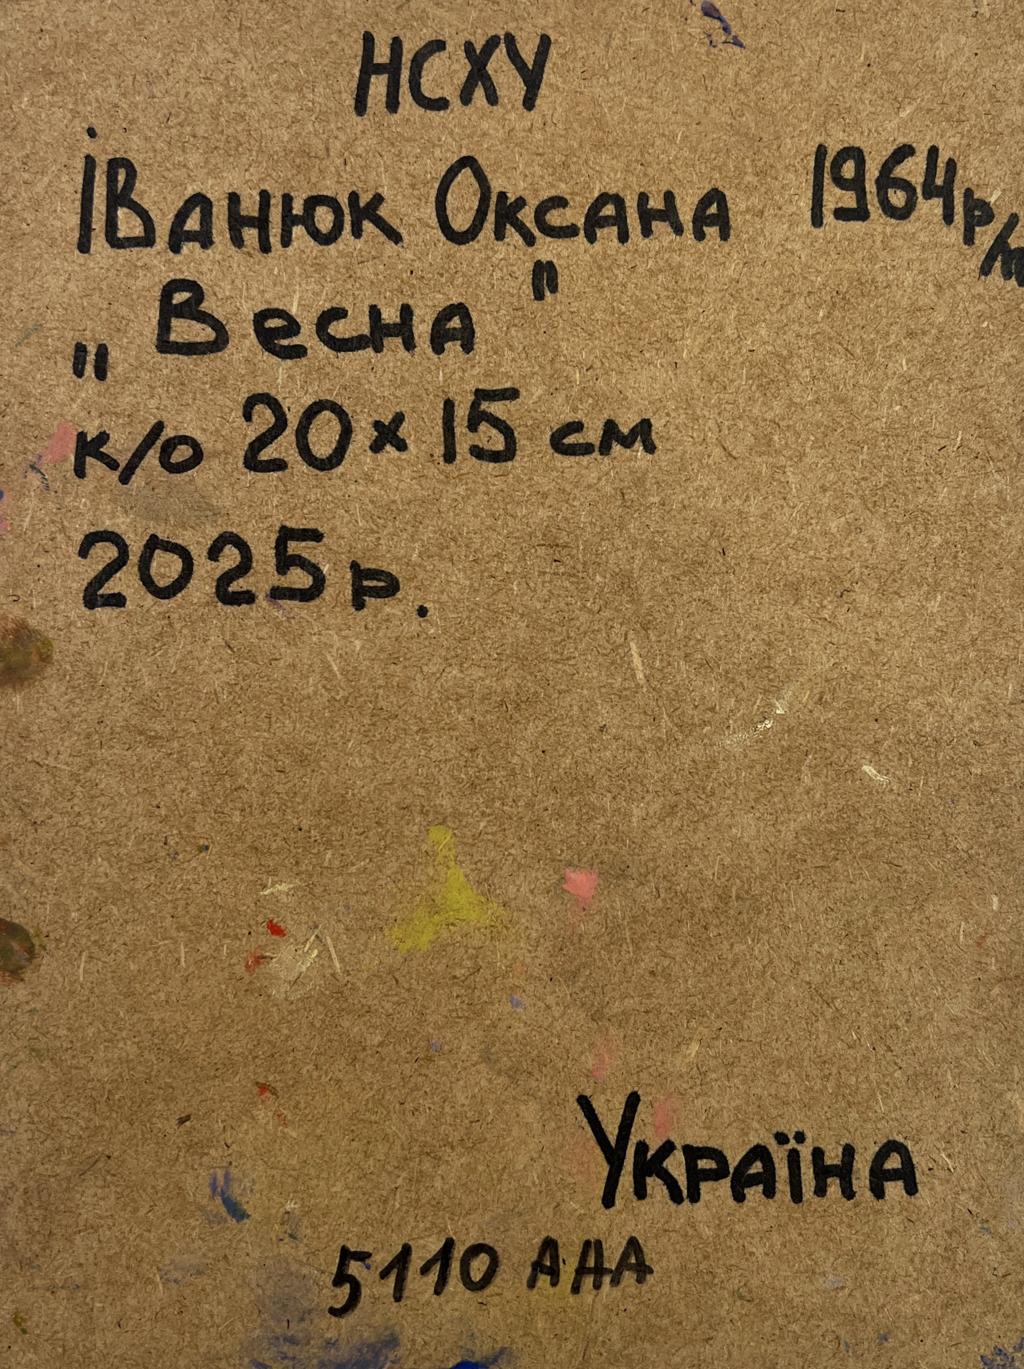 НСХУ
Іванюк Оксана 1964р/н
„Весна"
к/о 20х15 см
2025р.
Україна
5110 АНА